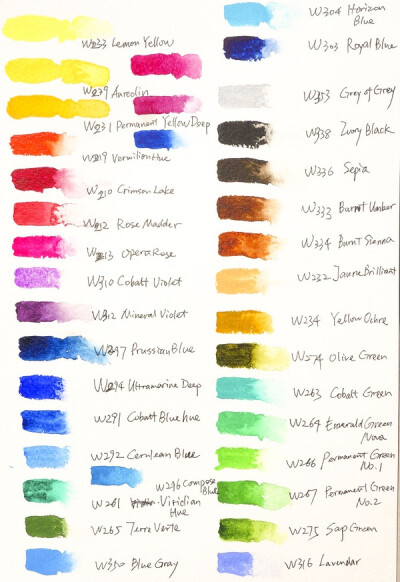 W033 Lemon Yellow
W079 Aureolin
W031 Permanent Yellow Deep
W019 Vermilion Hue
W010 Crimson Lake
W012 Rose Madder
W013 Opera Rose
W310 Cobalt Violet
W312 Mineral Violet
W297 Prussian Blue
W294 Ultramarine Deep
W291 Cobalt Blue hue
W292 Cerulean Blue
W296 Compose
Blue
W261 Viridian
Hue
W265 Terre Verte
W350 Blue Gray
W304 Horizon
Blue
W303 Royal Blue
W353 Grey of Grey
W338 Ivory Black
W336 Sepia
W333 Burnt Umber
W334 Burnt Sienna
W232 Jaune Brilliant
W234 Yellow Ochre
W274 Olive Green
W263 Cobalt Green
W264 Emerald Green
Nova
W266 Permanent Green
No.1
W267 Permanent Green
No.2
W275 Sap Green
W316 Lavendar